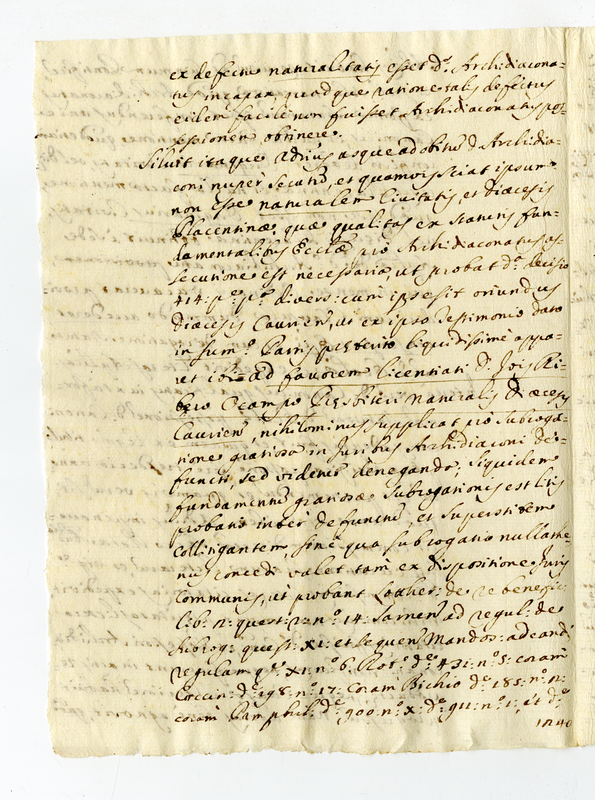 ex defectu naturalitatis esset d.º Archidiacona-
tus incapax, quodque ratione talis defectus
eidem facile non fuisset Archidiaconatus pos-
sessionem obtinere.
Siluit itaque Adrius usque ad obitum D Archidia-
coni nuper secutum, et quamvis sciat ipsum
non esse naturalem Civitatis, et Diæcesis
Placentinæ, quæ qualitas ex statutis fun-
damentalibus Ecclæ pro Archidiaconatus as-
secutione est necessaria, ut probat d.ª decisio
414: p.º p.º divers: cum ipse sit oriundus
Diæcesis Caurien, ut ex ipso testimonio dato
in sum.º Partis liquidissime appa-
ret ibi ad favorem licentiati D. Jois Ri-
bero Ocampo Presbiteri naturalis Diæcesis
Caurien, nihilominus supplicat pro subroga-
tione gratiosa in Juribus Archidiaconi de-
functi, sed videtur deneganda, siquidem
fundamentum gratiosæ subrogationis est litis
probatio inter defunctum, et superstitem
collitigantem, sine qua subrogatio nullathe-
nus concedi valet tam ex dispositione Juris
communis, ut probant Lother: de re benefic:
lib: 2: quest: 2: n.º 14: ad regul: de
subrog: quest: XI: et sequen Mandos: ad eand
regulam q.e XI: n.º 6: Rot.ª d.e 431: n.º 5: coram
Coccin: d.e 198: n.º 17: Coram Bichio d.e 185: n.º 2:
coram Pamphil: d.e 900: n.º X: d.e 911: n.º 1: et d.e